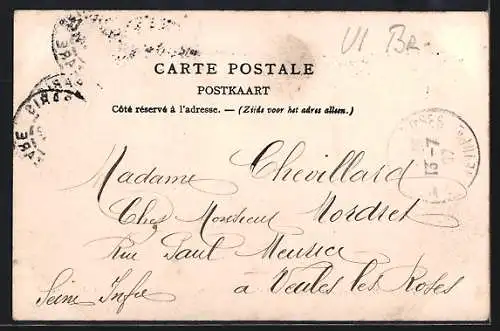 VI Br
CARTE POSTALE
POSTKAART
Côté réservé à l'adresse. — (Zijde voor het adres alleen.)
Madame Chevillard
Chez Monsieur Mordret
Rue Paul Meurice
à Veules les Roses
Seine Infre